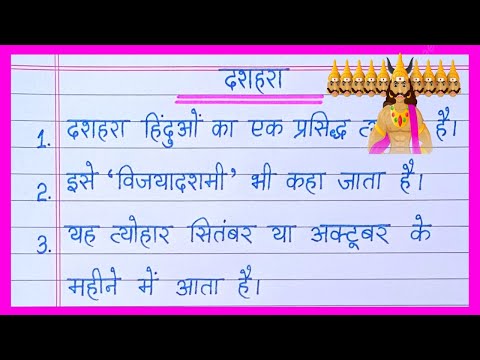 दशहरा
1. दशहरा हिंदुओं का एक प्रसिद्ध है।
2. इसे ‘विजयादशमी’ भी कहा जाता है।
3. यह त्योहार सितंबर या अक्टूबर के
महीने में आता है।